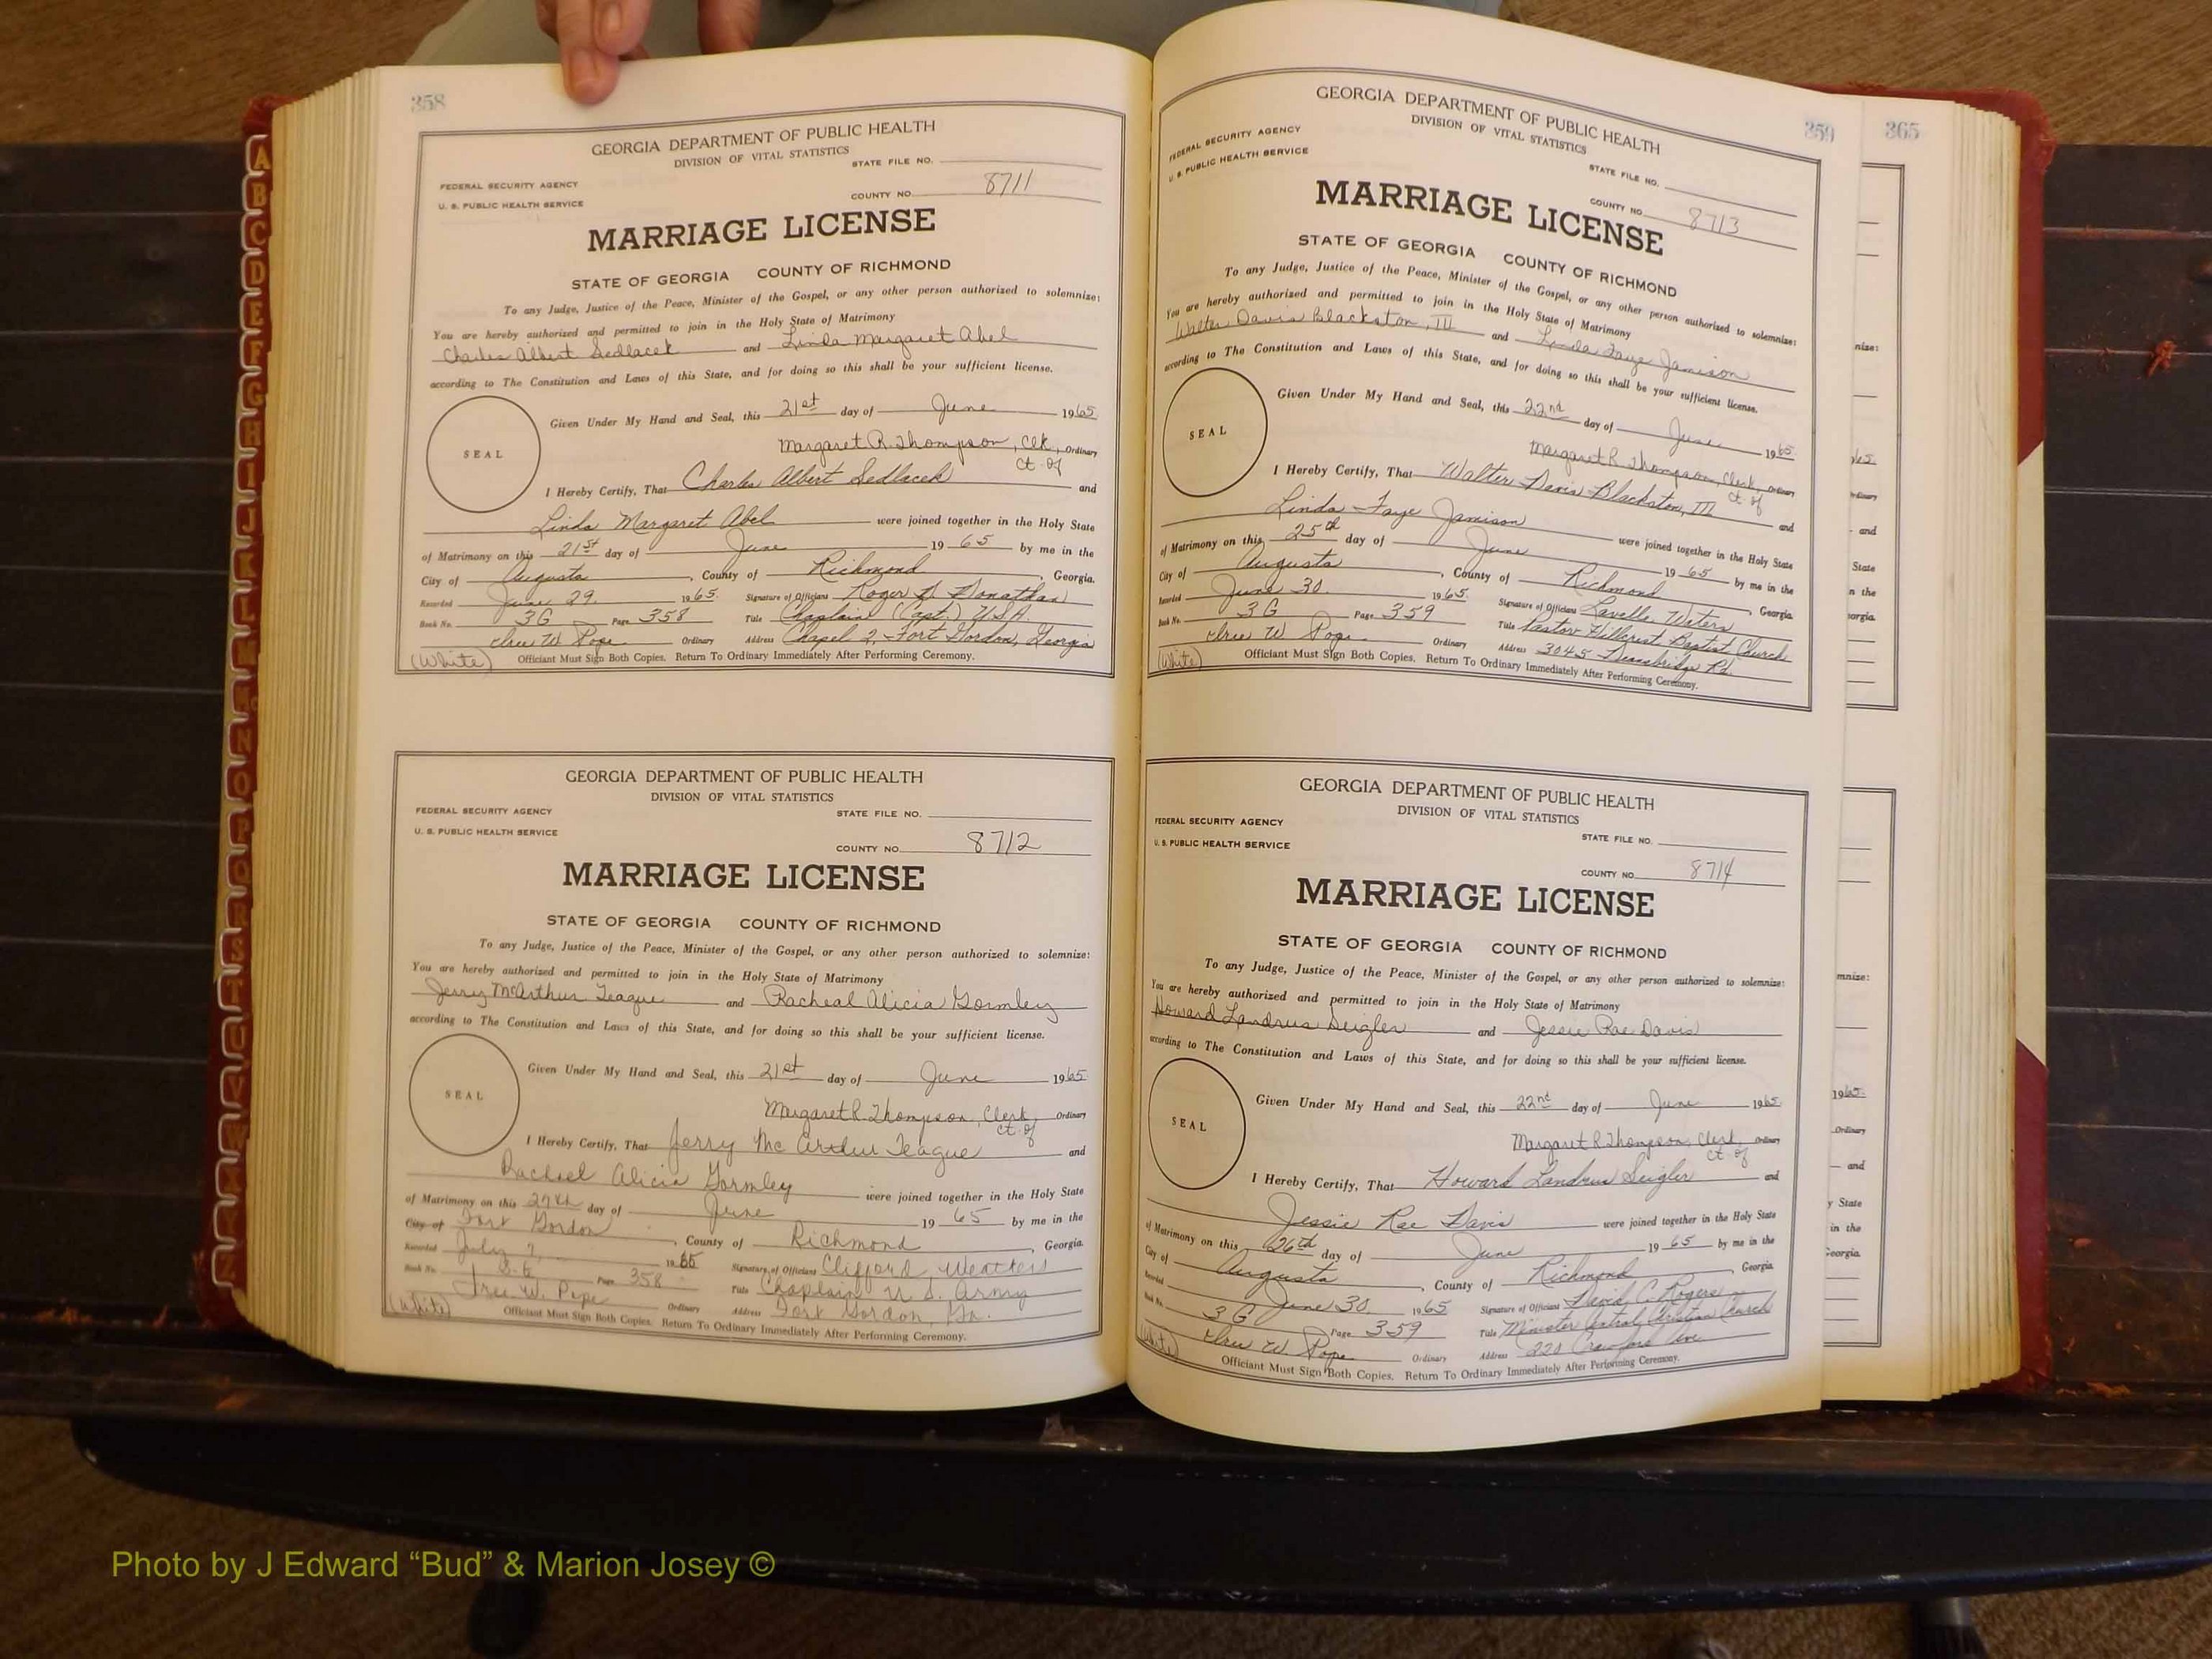 358
GEORGIA DEPARTMENT OF PUBLIC HEALTH
DIVISION OF VITAL STATISTICS
STATE FILE NO.
FEDERAL SECURITY AGENCY
U. S. PUBLIC HEALTH SERVICE
COUNTY NO. 8711
MARRIAGE LICENSE
STATE OF GEORGIA COUNTY OF RICHMOND
To any Judge, Justice of the Peace, Minister of the Gospel, or any other person authorized to solemnize:
You are hereby authorized and permitted to join in the Holy State of Matrimony
Charles Albert Sedlacek and Linda Margaret Abel
according to The Constitution and Laws of this State, and for doing so this shall be your sufficient license.
SEAL
Given Under My Hand and Seal, this 21st day of June 1965
Margaret R. Thompson, Clk, Ordinary
ct. of
I Hereby Certify, That Charles Albert Sedlacek and
Linda Margaret Abel were joined together in the Holy State
of Matrimony on this 21st day of June 19 65 by me in the
City of Augusta, County of Richmond, Georgia.
Recorded June 29. 1965. Signature of Officiant Roger Donathan
Book No. 3G Page 358 Title Chaplain (Capt.) USA.
W Pope Ordinary Address Chapel 2, Fort Gordon, Georgia
(White) Officiant Must Sign Both Copies. Return To Ordinary Immediately After Performing Ceremony.
GEORGIA DEPARTMENT OF PUBLIC HEALTH
DIVISION OF VITAL STATISTICS
STATE FILE NO.
FEDERAL SECURITY AGENCY
U. S. PUBLIC HEALTH SERVICE
COUNTY NO. 8712
MARRIAGE LICENSE
STATE OF GEORGIA COUNTY OF RICHMOND
To any Judge, Justice of the Peace, Minister of the Gospel, or any other person authorized to solemnize:
You are hereby authorized and permitted to join in the Holy State of Matrimony
Jerry McArthur Teague and Racheal Alicia Gormley
according to The Constitution and Laws of this State, and for doing so this shall be your sufficient license.
SEAL
Given Under My Hand and Seal, this 21st day of June 1965
Margaret R. Thompson, Clerk, Ordinary
ct. of
I Hereby Certify, That Jerry Mc Arthur Teague and
Rachael Alicia Gormley were joined together in the Holy State
of Matrimony on this 27th day of June 19 65 by me in the
City of Fort Gordon, County of Richmond, Georgia.
Recorded July 1965 Signature of Officiant Clifford Weathers
Book No. Page 358 Title Chaplain U. S. Army
W. Pope Ordinary Address Fort Gordon, Ga.
(White) Officiant Must Sign Both Copies. Return To Ordinary Immediately After Performing Ceremony.
359
GEORGIA DEPARTMENT OF PUBLIC HEALTH
DIVISION OF VITAL STATISTICS
FEDERAL SECURITY AGENCY
U. S. PUBLIC HEALTH SERVICE
STATE FILE NO.
COUNTY NO. 8713
MARRIAGE LICENSE
STATE OF GEORGIA COUNTY OF RICHMOND
To any Judge, Justice of the Peace, Minister of the Gospel, or any other person authorized to solemnize:
You are hereby authorized and permitted to join in the Holy State of Matrimony
Walter Davis Blackston, III and Linda Faye Jamison
according to The Constitution and Laws of this State, and for doing so this shall be your sufficient license.
SEAL
Given Under My Hand and Seal, this 22nd day of June 1965
Margaret R Thompson, Clerk, Ordinary
ct. of
I Hereby Certify, That Walter Davis Blackston, III and
Linda Faye Jamison were joined together in the Holy State
of Matrimony on this 25th day of June 19 65 by me in the
City of Augusta, County of Richmond, Georgia.
Recorded June 30. 1965. Signature of Officiant Lavelle Waters
Book No. 3G Page 359 Title Pastor Hillcrest Baptist Church
W Pope Ordinary Address 3045 Deansbridge Rd.
(White) Officiant Must Sign Both Copies. Return To Ordinary Immediately After Performing Ceremony.
GEORGIA DEPARTMENT OF PUBLIC HEALTH
DIVISION OF VITAL STATISTICS
FEDERAL SECURITY AGENCY
U. S. PUBLIC HEALTH SERVICE
STATE FILE NO.
COUNTY NO. 8714
MARRIAGE LICENSE
STATE OF GEORGIA COUNTY OF RICHMOND
To any Judge, Justice of the Peace, Minister of the Gospel, or any other person authorized to solemnize:
You are hereby authorized and permitted to join in the Holy State of Matrimony
Howard Landrus Seigler and Jessie Rae Davis
according to The Constitution and Laws of this State, and for doing so this shall be your sufficient license.
SEAL
Given Under My Hand and Seal, this 22nd day of June 1965
Margaret R Thompson, Clerk, Ordinary
ct. of
I Hereby Certify, That Howard Landrus Seigler and
Jessie Rae Davis were joined together in the Holy State
of Matrimony on this 26th day of June 19 65 by me in the
City of Augusta, County of Richmond, Georgia
Recorded June 30 1965 Signature of Officiant David C. Rogers
Book No. 3G Page 359 Title Minister Central Christian Church
W Pope Ordinary Address 220 Crawford Ave.
(White) Officiant Must Sign Both Copies. Return To Ordinary Immediately After Performing Ceremony.
365
nize:
Ordinary
and
State
n the
orgia.
mnize:
1965.
Ordinary
and
y State
in the
Georgia.
A
B
C
D
E
F
G
H
I
J
K
L
M
N
O
P
Q
R
S
T
U
V
W
X
Y
Z
Photo by J Edward “Bud” & Marion Josey ©